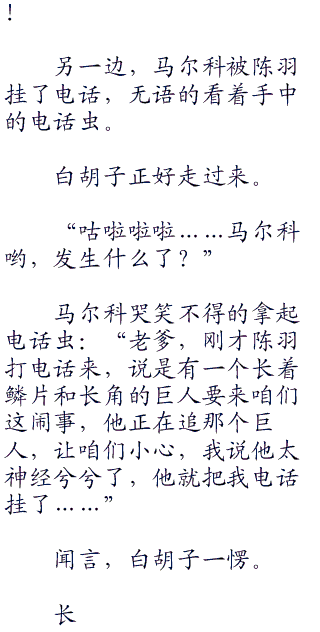 ！
另一边，马尔科被陈羽
挂了电话，无语的看着手中
的电话虫。
白胡子正好走过来。
“咕啦啦啦……马尔科
哟，发生什么了？”
马尔科哭笑不得的拿起
电话虫：“老爹，刚才陈羽
打电话来，说是有一个长着
鳞片和长角的巨人要来咱们
这闹事，他正在追那个巨
人，让咱们小心，我说他太
神经兮兮了，他就把我电话
挂了……”
闻言，白胡子一愣。
长